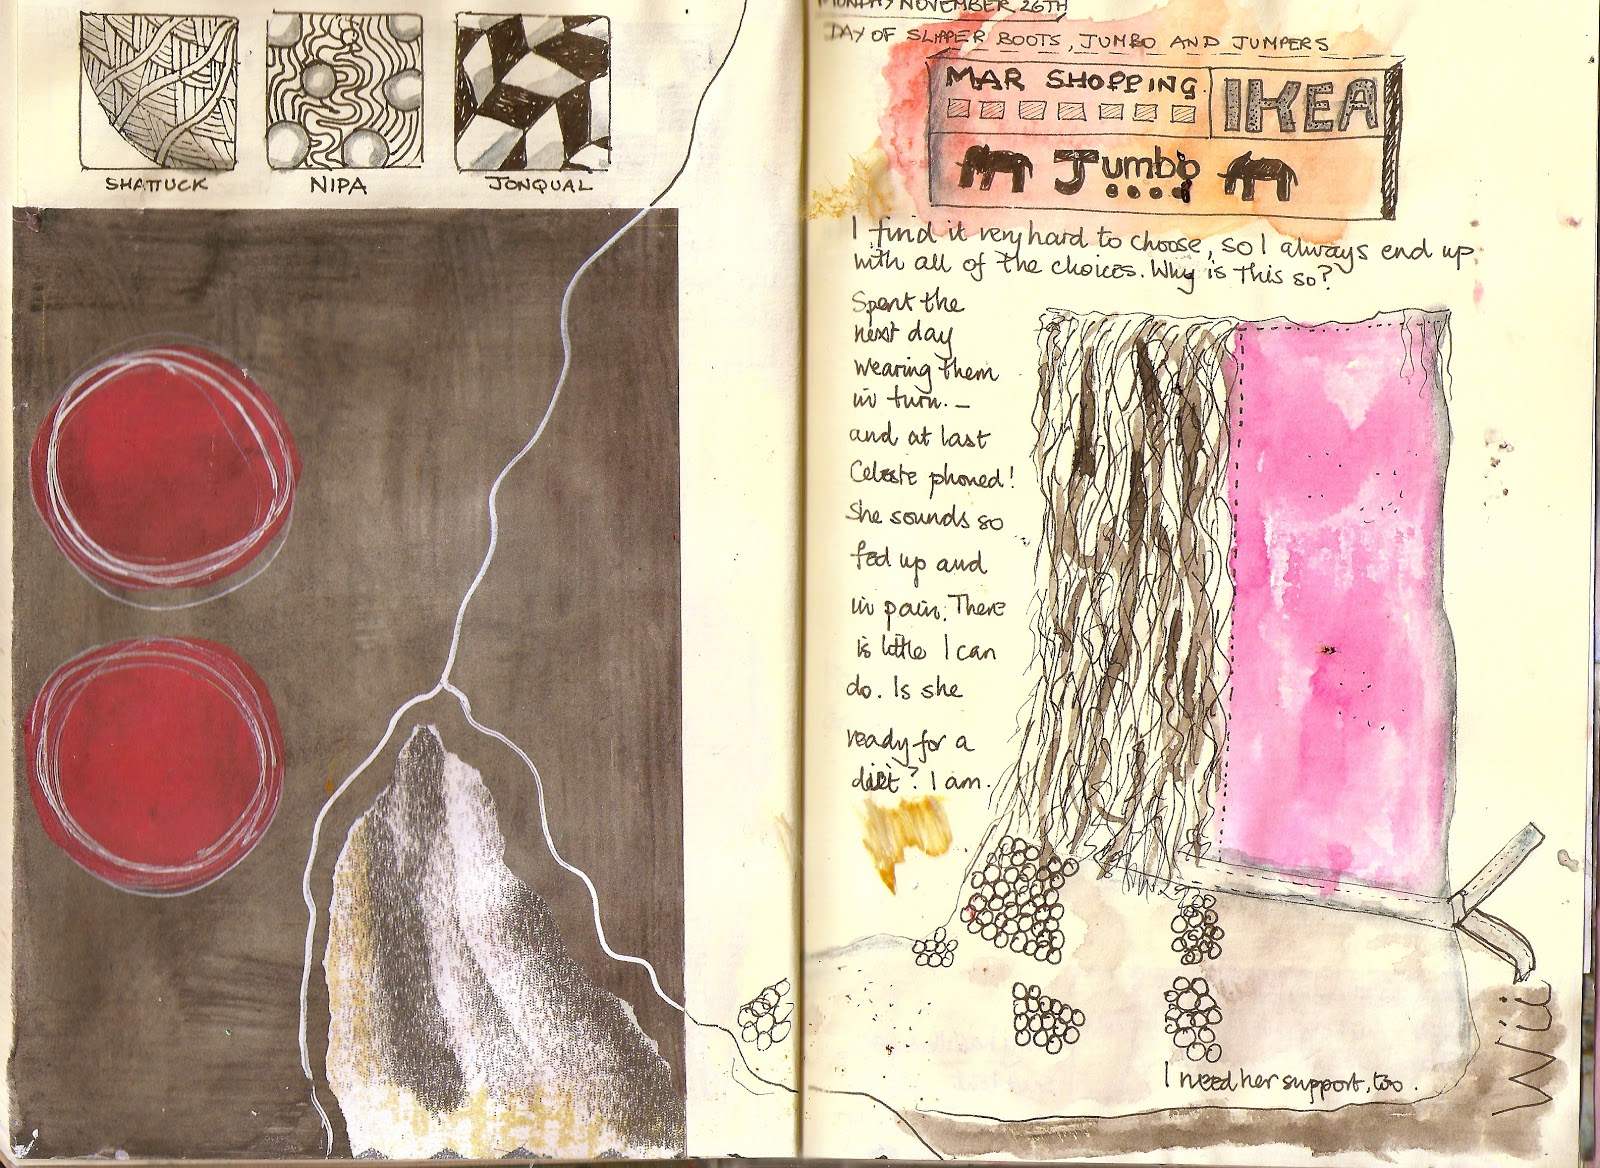 SHATTUCK
NIPA
JONQUAL
MONDAY NOVEMBER 26TH
DAY OF SLIPPER BOOTS, JUMBO AND JUMPERS
MAR SHOPPING
IKEA
Jumbo
I find it very hard to choose, so I always end up
with all of the choices. Why is this so?
Spent the
next day
wearing them
in turn. —
and at last
Celeste phoned!
She sounds so
fed up and
in pain. There
is little I can
do. Is she
ready for a
diet? I am.
I need her support, too.
Wii